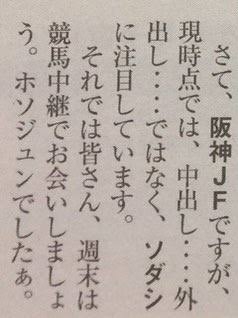 さて、阪神JFですが、
現時点では、中出し‥‥外
出し‥‥ではなく、ソダシ
に注目しています。
それでは皆さん、週末は
競馬中継でお会いしましょ
う。ホソジュンでしたぁ。